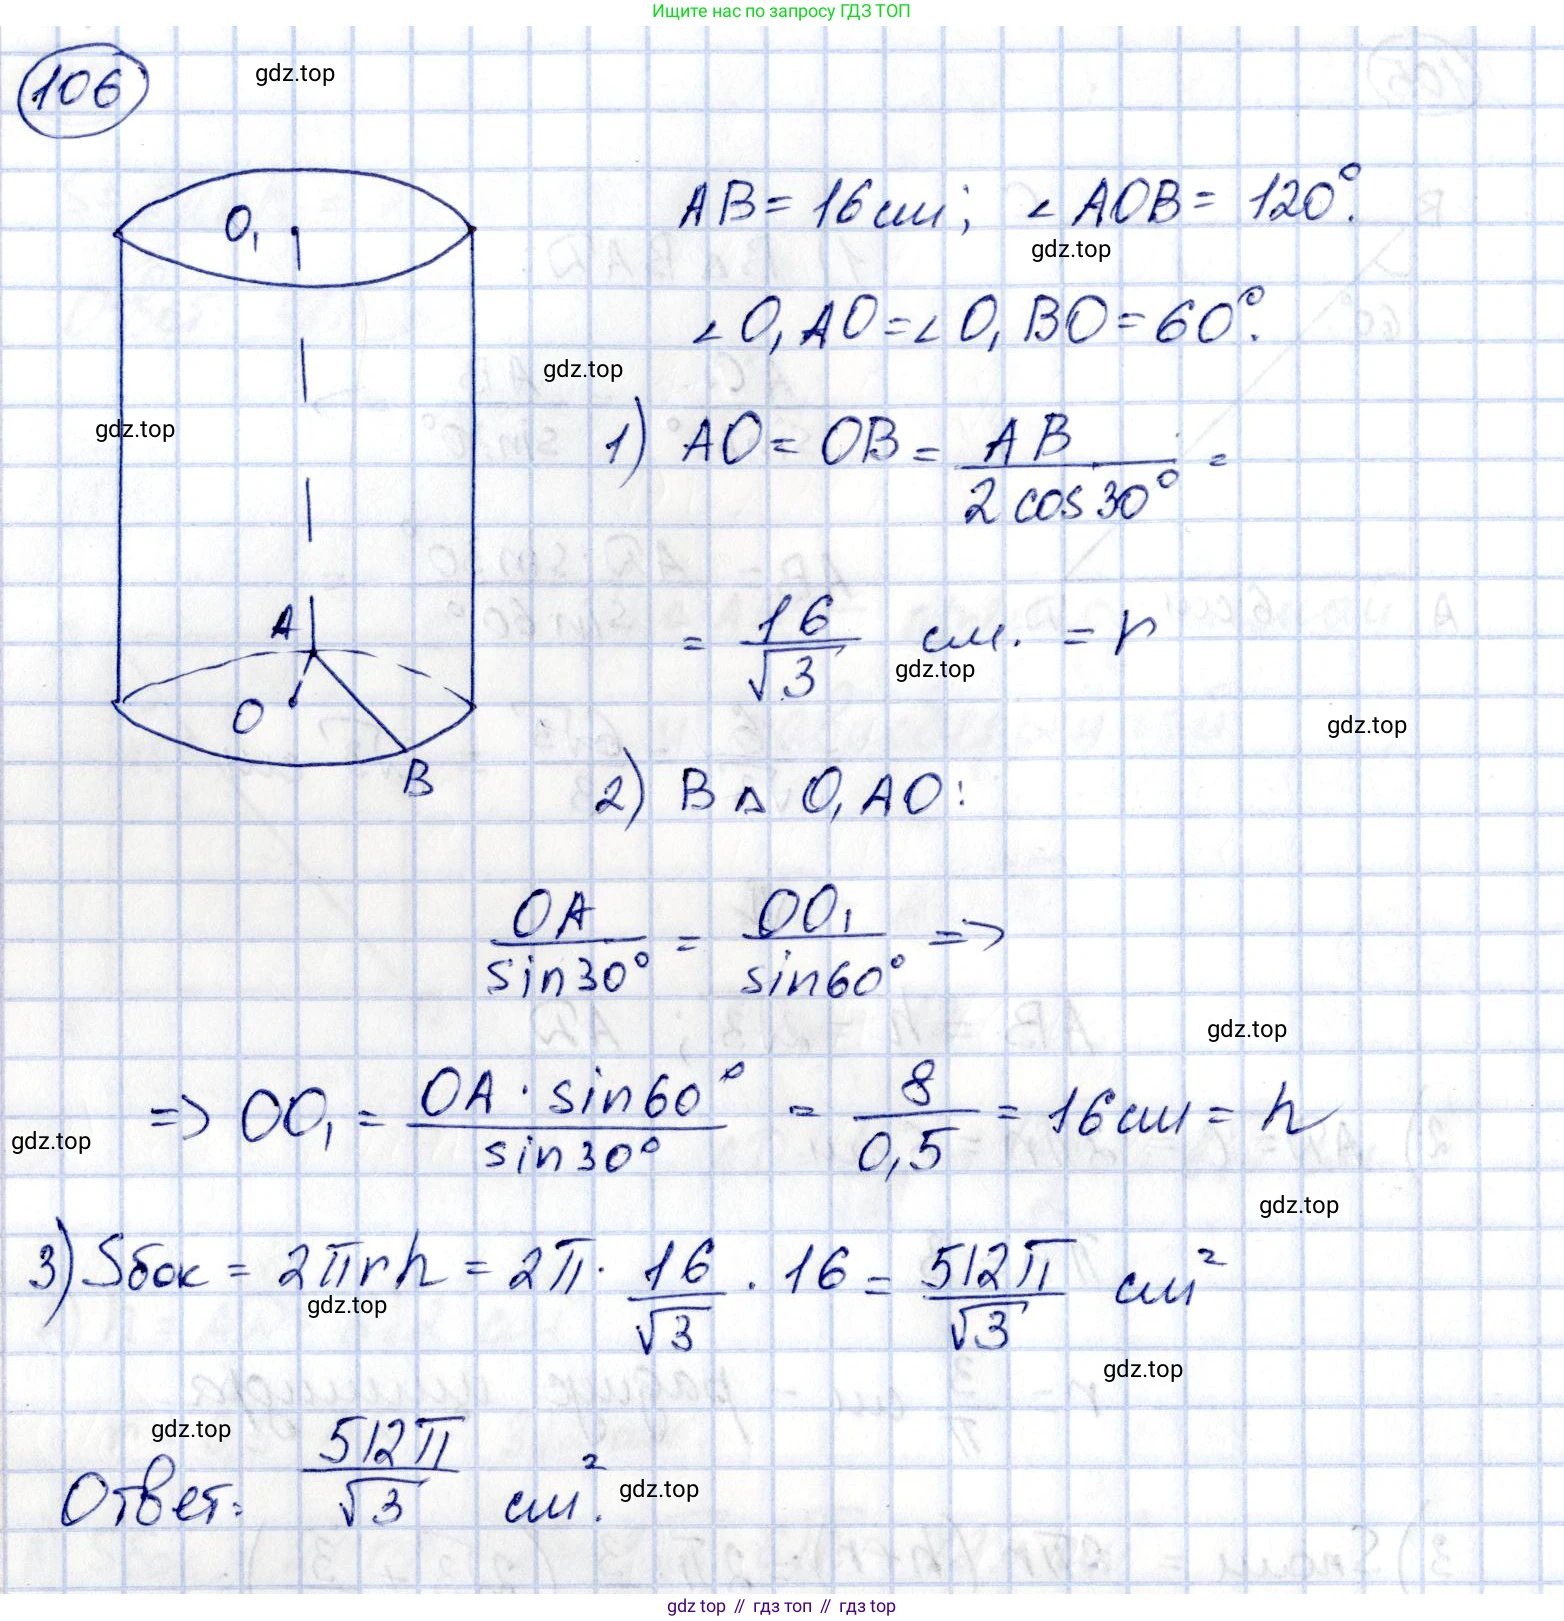 Ищите нас по запросу ГДЗ ТОП
106
gdz.top
O₁
AB = 16 см; ∠AOB = 120°.
gdz.top
∠O₁AO = ∠O₁BO = 60°.
gdz.top
gdz.top
1) AO = OB = AB / (2 cos 30°) =
A
= 16/√3 см. = r
gdz.top
O
gdz.top
B
2) В △ O₁AO:
OA / sin 30° = OO₁ / sin 60° =>
gdz.top
=> OO₁ = OA · sin 60° / sin 30° = 8 / 0,5 = 16 см = h
gdz.top
gdz.top
3) Sбок = 2πrh = 2π · 16/√3 · 16 = 512π/√3 см²
gdz.top
gdz.top
gdz.top
Ответ: 512π/√3 см².
gdz.top
gdz.top // гдз топ // гдз.top